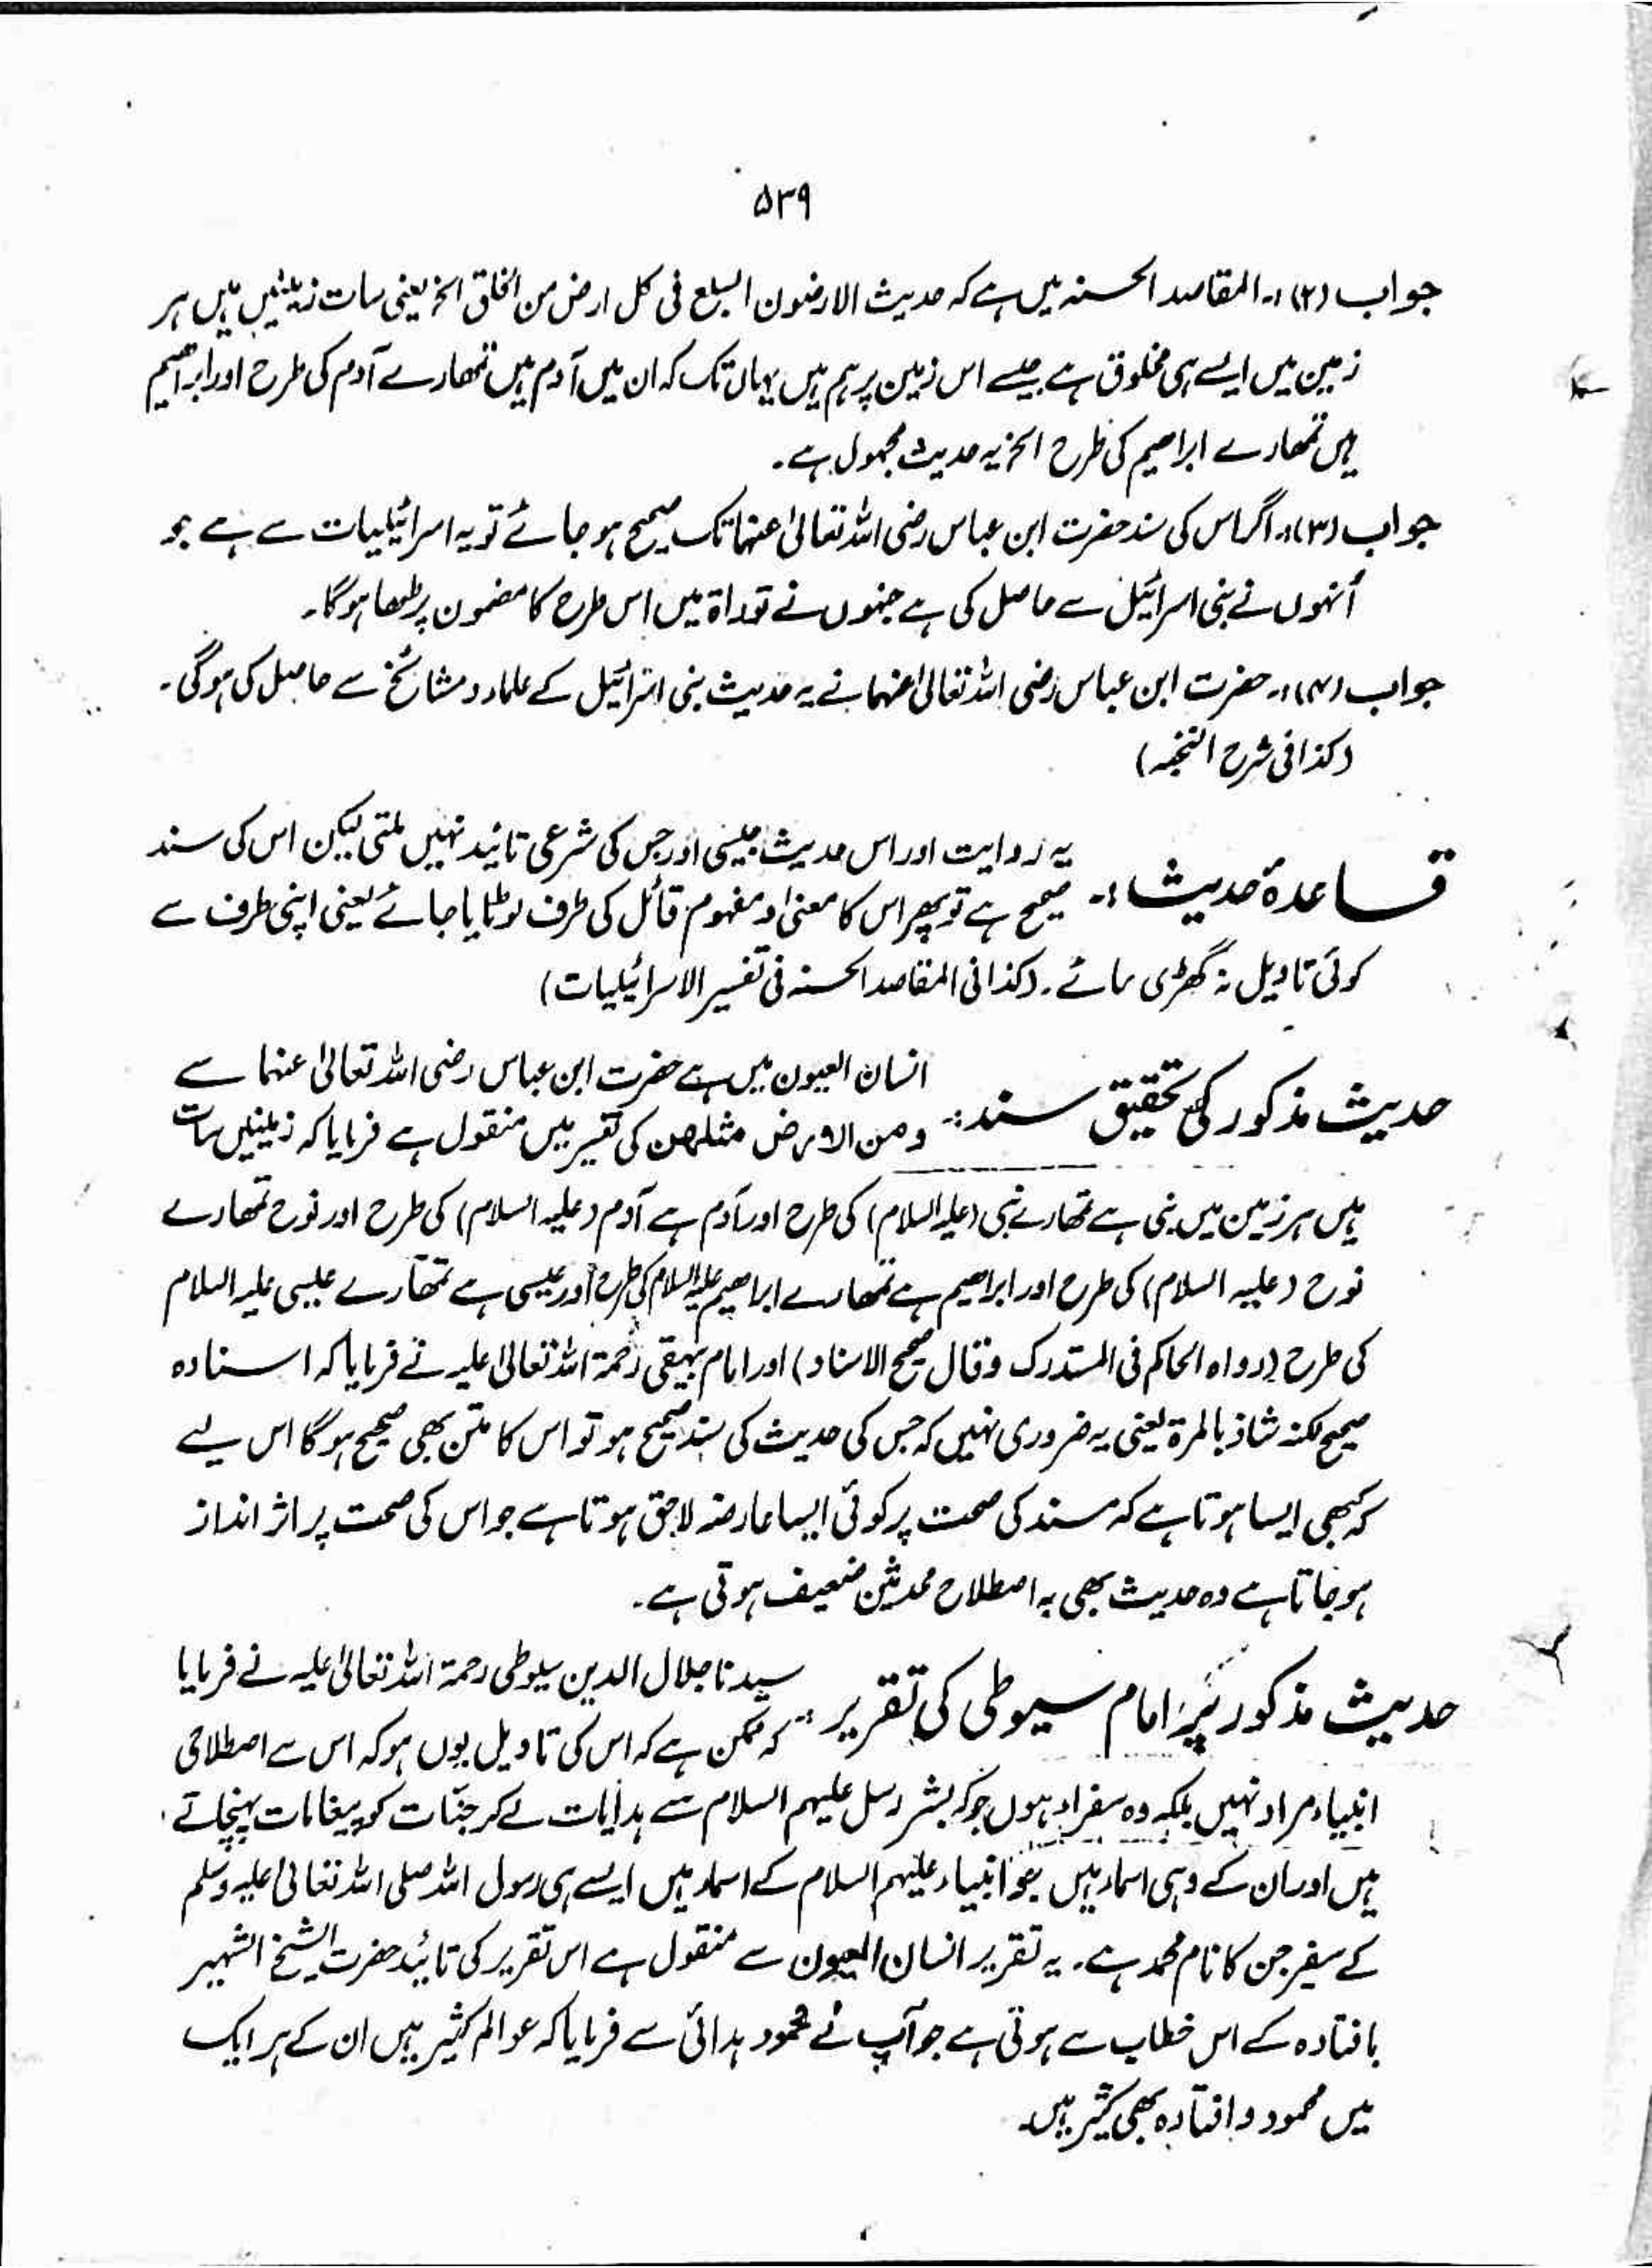 ۵۳۹
جواب (۲)؛۔ المقاصد الحسنہ میں ہے کہ حدیث الارضون السبع فی کل ارض من الخلق الخ یعنی سات زمینیں ہیں ہر
زمین میں ایسے ہی مخلوق ہے جیسے اس زمین پر ہم ہیں یہاں تک کہ ان میں آدم ہیں تمھارے آدم کی طرح اور ابراھیم
ہیں تمھارے ابراھیم کی طرح الخ یہ حدیث مجہول ہے۔
جواب (۳)؛۔ اگر اس کی سند حضرت ابن عباس رضی اللہ تعالیٰ عنہما تک صحیح ہو جائے تو یہ اسرائیلیات سے ہے جو
اُنہوں نے بنی اسرائیل سے حاصل کی ہے جنہوں نے توراۃ میں اس طرح کا مضمون پڑھا ہوگا۔
جواب (۴)؛۔ حضرت ابن عباس رضی اللہ تعالیٰ عنہما نے یہ حدیث بنی اسرائیل کے علماء و مشائخ سے حاصل کی ہوگی۔
(کذا فی شرح النخبہ)
قاعدۂ حدیث؛۔ یہ روایت اور اس حدیث جیسی اور جس کی شرعی تائید نہیں ملتی لیکن اس کی سند
صحیح ہے تو پھر اس کا معنیٰ و مفہوم قائل کی طرف لوٹایا جائے یعنی اپنی طرف سے
کوئی تاویل نہ گھڑی جائے۔ (کذا فی المقاصد الحسنہ فی تفسیر الاسرائیلیات)
حدیث مذکور کی تحقیق سند؛۔ انسان العیون میں ہے حضرت ابن عباس رضی اللہ تعالیٰ عنہما سے
ومن الارض مثلھن کی تفسیر میں منقول ہے فرمایا کہ زمینیں سات
ہیں ہر زمین میں نبی ہے تمھارے نبی (علیہ السلام) کی طرح اور آدم ہے آدم (علیہ السلام) کی طرح اور نوح تمھارے
نوح (علیہ السلام) کی طرح اور ابراہیم ہے تمھارے ابراھیم علیہ السلام کی طرح اور عیسی ہے تمھارے عیسی علیہ السلام
کی طرح (رواہ الحاکم فی المستدرک وقال صحیح الاسناد) اور امام بیہقی رحمۃ اللہ تعالیٰ علیہ نے فرمایا کہ اسنادہ
صحیح لکنہ شاذ بالمرۃ یعنی یہ ضروری نہیں کہ جس کی حدیث کی سند صحیح ہو تو اس کا متن بھی صحیح ہوگا اس لیے
کہ کبھی ایسا ہوتا ہے کہ سند کی صحت پر کوئی ایسا عارضہ لاحق ہوتا ہے جو اس کی صحت پر اثر انداز
ہو جاتا ہے وہ حدیث بھی بہ اصطلاح محدثین ضعیف ہوتی ہے۔
حدیث مذکور پر امام سیوطی کی تقریر؛۔ سیدنا جلال الدین سیوطی رحمۃ اللہ تعالیٰ علیہ نے فرمایا
کہ ممکن ہے کہ اس کی تاویل یوں ہو کہ اس سے اصطلاحی
انبیاء مراد نہیں بلکہ وہ سفراء ہوں جو کہ بشر رسل علیہم السلام سے ہدایات لے کر جنّات کو پیغامات پہنچاتے
ہیں اور ان کے وہی اسماء ہیں جو انبیاء علیہم السلام کے اسماء ہیں ایسے ہی رسول اللہ صلی اللہ تعالیٰ علیہ وسلم
کے سفیر جن کا نام محمد ہے۔ یہ تقریر انسان العیون سے منقول ہے اس تقریر کی تائید حضرت الشیخ الشہیر
بافتادہ کے اس خطاب سے ہوتی ہے جو آپ نے محمود ہدائی سے فرمایا کہ عوالم کثیر ہیں ان کے ہر ایک
میں محمود و افتادہ بھی کثیر ہیں۔